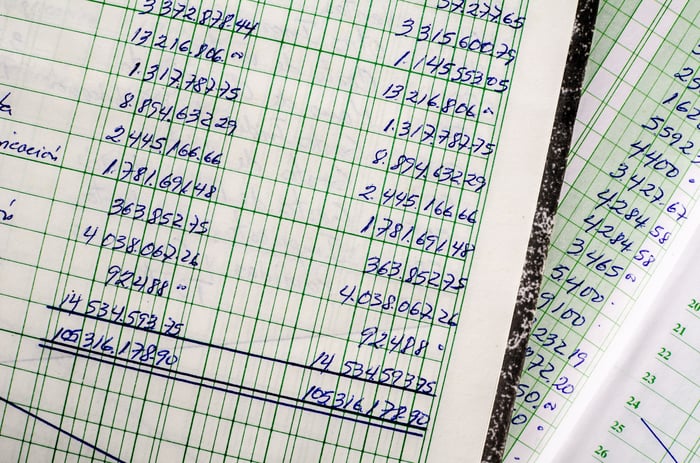 3 372.878.44
13 216.806.00
1.317.787.75
8.894.632.29
2.445.166.66
icación
1.781.691.48
363.852.75
4 038.067.26
92488.00
14 534.593.75
105316.178.90
57.277.65
3 315 600.79
1.145 553.05
13 216.806.00
1.317.787.75
8.894.632.29
2.445.166.66
1.781.691.48
363.852.75
4.038.067.26
92488.
14 534.593.75
105316.178.90
5592
4400.
3427.67
4284.58
4284.58
3465.00
5400.
9100.
232.19
372.20
20
21
22
23
24
25
26